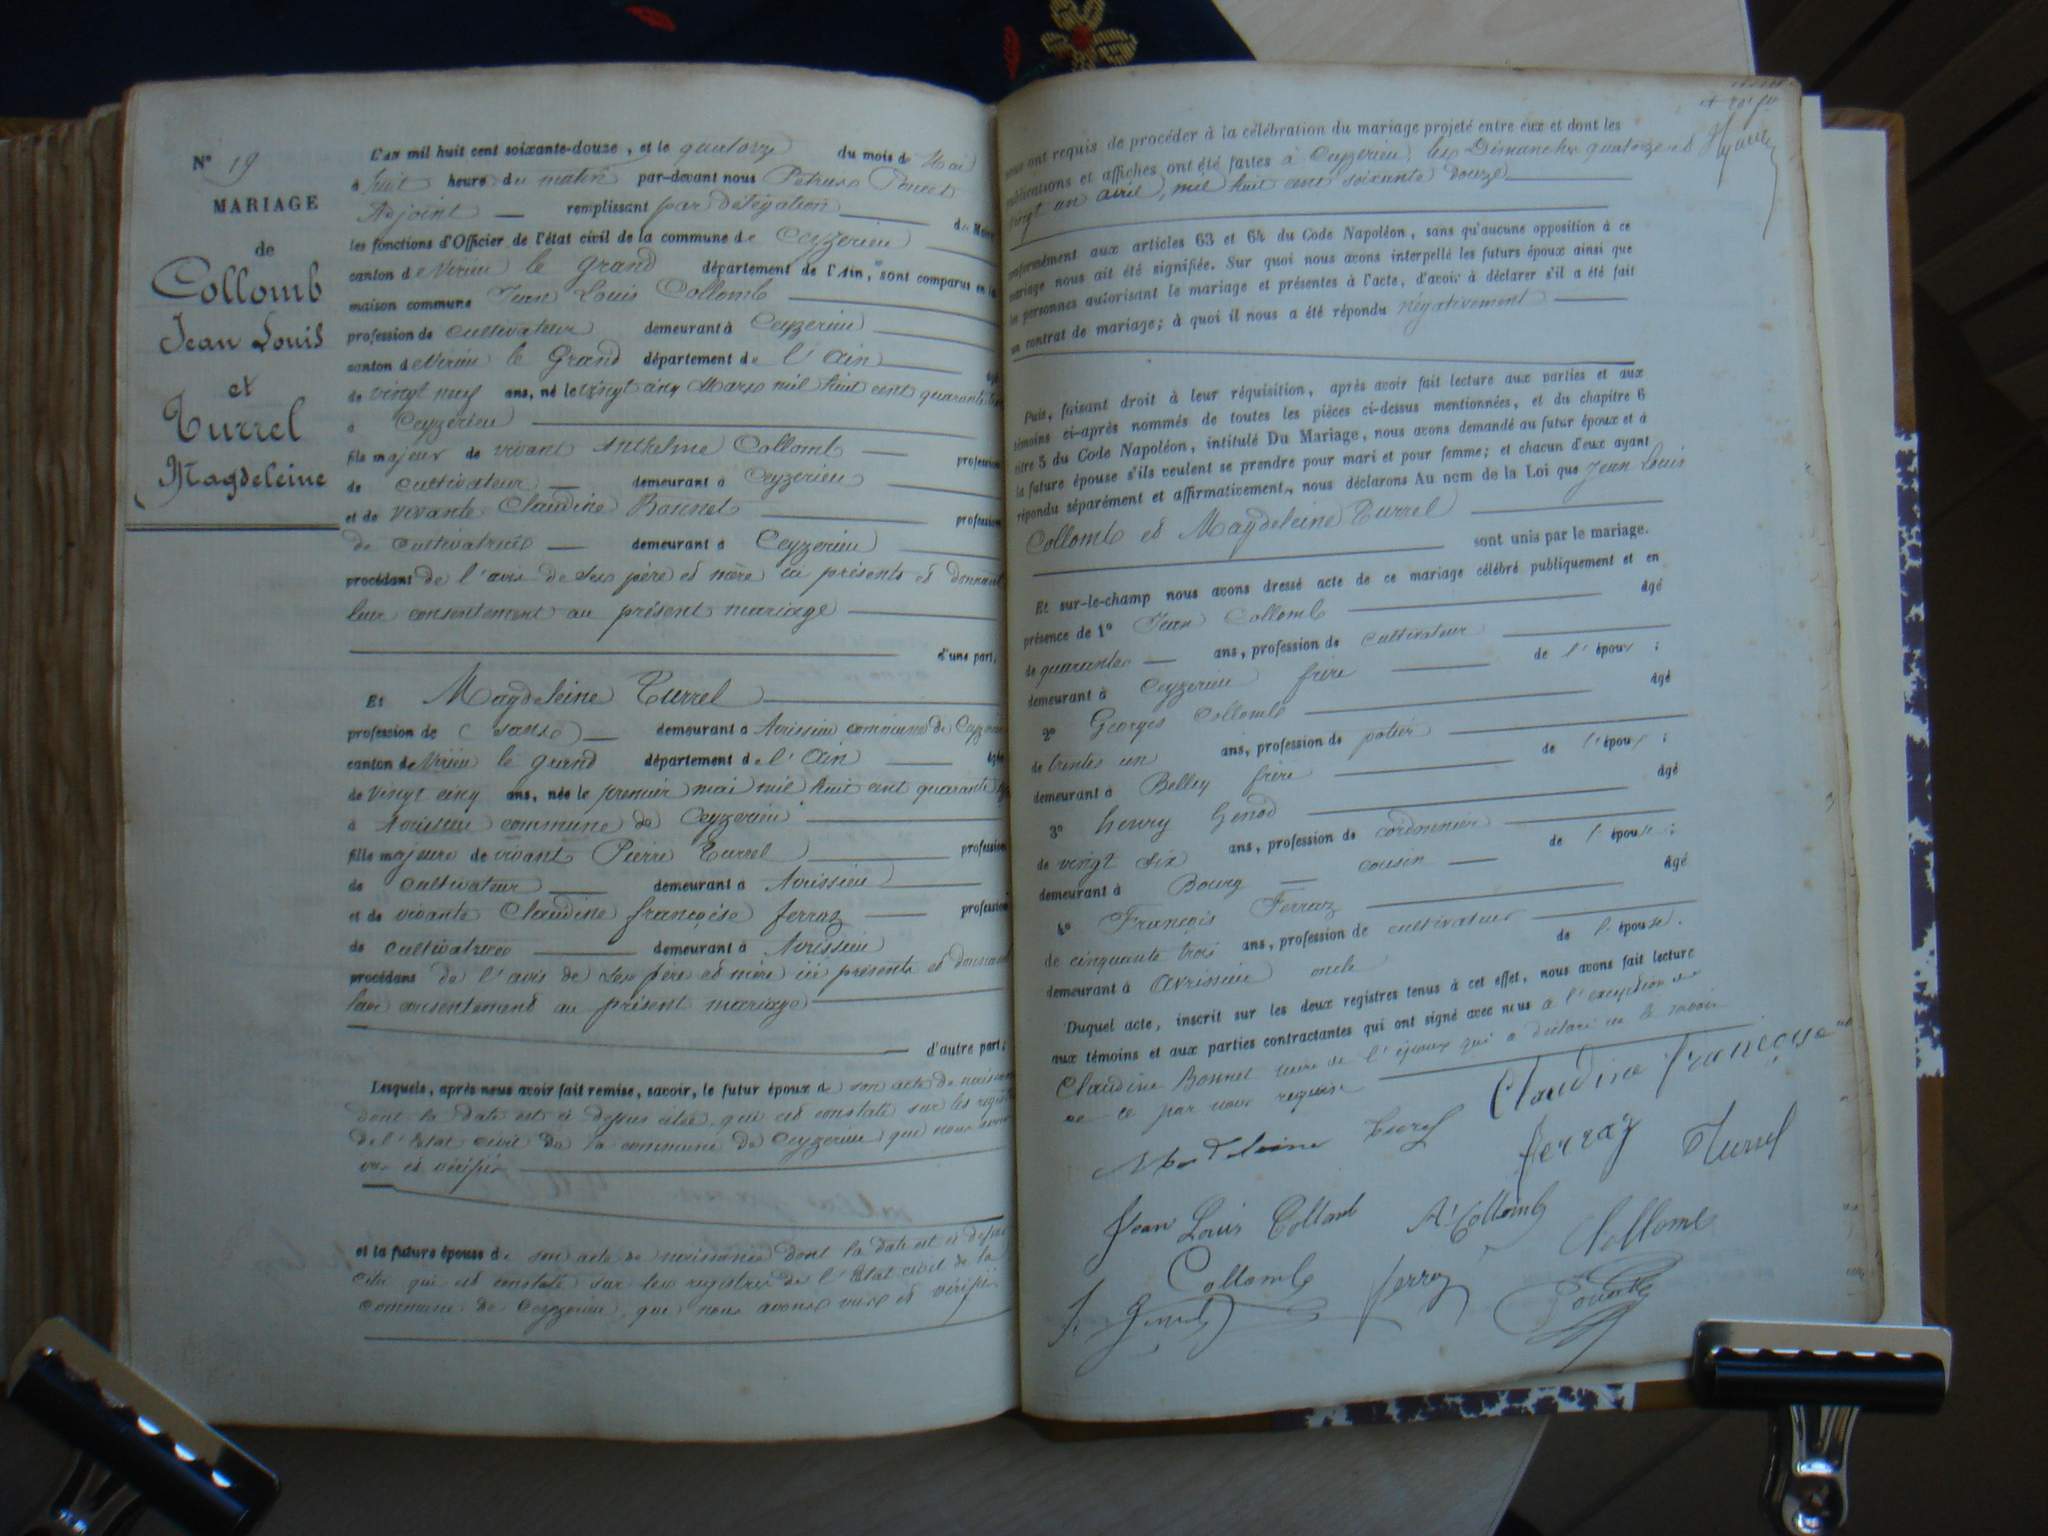 N° 19
MARIAGE
de
Collomb
Jean Louis
et
Turrel
Magdeleine
L'an mil huit cent soixante-douze, et le quatorze du mois de Mai
à huit heure du matin par-devant nous Petrus
Adjoint remplissant par délégation du Maire
les fonctions d'Officier de l'état civil de la commune de Ceyzerieu
canton de Virieu le grand département de l'Ain, sont comparus en la
maison commune Jean Louis Collomb
profession de cultivateur demeurant à Ceyzerieu
canton de Virieu le Grand département de l'Ain âgé
de vingt neuf ans, né le vingt cinq Mars mil huit cent quarante trois
à Ceyzerieu
fils majeur de vivant Anthelme Collomb profession
de cultivateur demeurant à Ceyzerieu
et de vivante Claudine Bonnet profession
de cultivatrice demeurant à Ceyzerieu
procédant de l'avis de ses père et mère ici présents et donnant
leur consentement au présent mariage
d'une part,
Et Magdeleine Turrel
profession de (sans) demeurant à Avrissieu commune de Ceyzerieu
canton de Virieu le grand département de l'Ain âgée
de vingt cinq ans, née le premier mai mil huit cent quarante
à Avrissieu commune de Ceyzerieu
fille majeure de vivant Pierre Turrel profession
de cultivateur demeurant à Avrissieu
et de vivante Claudine françoise ferraz profession
de cultivatrice demeurant à Avrissieu
procédant de l'avis de ses père et mère ici présents et donnant
leur consentement au présent mariage
d'autre part;
Lesquels, après nous avoir fait remise, savoir, le futur époux de son acte de naissance
dont la date est ci dessus citée, qui est constaté sur les registres
de l'Etat civil de la commune de Ceyzerieu que nous avons
vu et vérifié
et la future épouse de son acte de naissance dont la date est ci dessus
citée qui est constaté sur les registres de l'Etat civil de la
commune de Ceyzerieu, que nous avons vu et vérifié
nous ont requis de procéder à la célébration du mariage projeté entre eux et dont les
publications et affiches ont été faites à Ceyzerieu, les Dimanches quatorze et
vingt un avril, mil huit cent soixante douze
conformément aux articles 63 et 64 du Code Napoléon, sans qu'aucune opposition à ce
mariage nous ait été signifiée. Sur quoi nous avons interpellé les futurs époux ainsi que
les personnes autorisant le mariage et présentes à l'acte, d'avoir à déclarer s'il a été fait
un contrat de mariage; à quoi il nous a été répondu négativement
Puis, faisant droit à leur réquisition, après avoir fait lecture aux parties et aux
témoins ci-après nommés de toutes les pièces ci-dessus mentionnées, et du chapitre 6
titre 5 du Code Napoléon, intitulé Du Mariage, nous avons demandé au futur époux et à
la future épouse s'ils veulent se prendre pour mari et pour femme; et chacun d'eux ayant
répondu séparément et affirmativement, nous déclarons Au nom de la Loi que Jean Louis
Collomb et Magdeleine Turrel
sont unis par le mariage.
Et sur-le-champ nous avons dressé acte de ce mariage célébré publiquement et en
présence de 1° Jean Collomb âgé
de quarante ans, profession de cultivateur
demeurant à Ceyzerieu frère de l'époux;
2° Georges Collomb âgé
de trente un ans, profession de potier
demeurant à Belley frère de l'époux;
3° henry Genod âgé
de vingt six ans, profession de cordonnier
demeurant à Bourg cousin de l'épouse;
4° François Ferraz âgé
de cinquante trois ans, profession de cultivateur
demeurant à Avrissieu oncle de l'épouse.
Duquel acte, inscrit sur les deux registres tenus à cet effet, nous avons fait lecture
aux témoins et aux parties contractantes qui ont signé avec nous à l'exception de
Claudine Bonnet mère de l'époux qui a déclaré ne le savoir
de ce par nous requise
Claudine Françoise
ferraz
Turrel
Jean Louis Collomb
At Collomb
Collomb
Collomb
ferraz